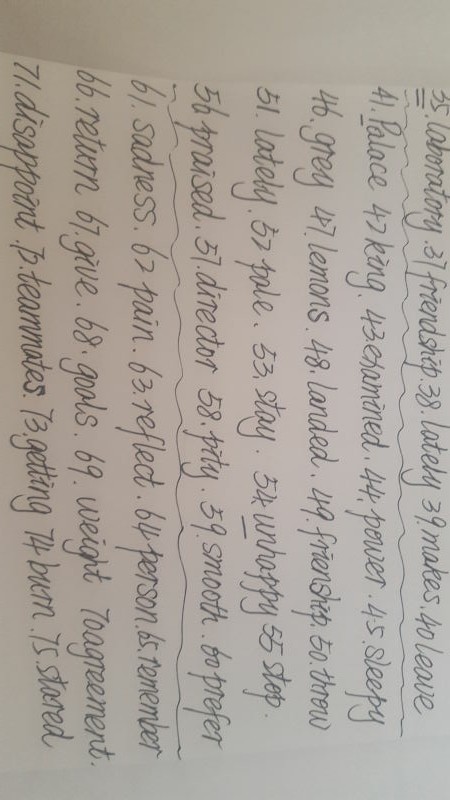 35. laboratory. 37 friendship. 38. lately 39. makes. 40 leave
41. Palace 42 king. 43 examined. 44. power. 45. sleepy
46. grey 47. lemons. 48. landed. 49. frienship. 50. throw
51. lately. 52 pale. 53. stay. 54. unhappy 55 stop.
56 praised. 57. director 58. pity. 59. smooth. 60 prefer
61. sadness. 62 pain. 63. reflect. 64 person. 65. remember
66. return 67. give. 68. goals. 69. weight 70 agreement.
71. disappoint. 72. teammates. 73. getting 74 burn. 75. stared